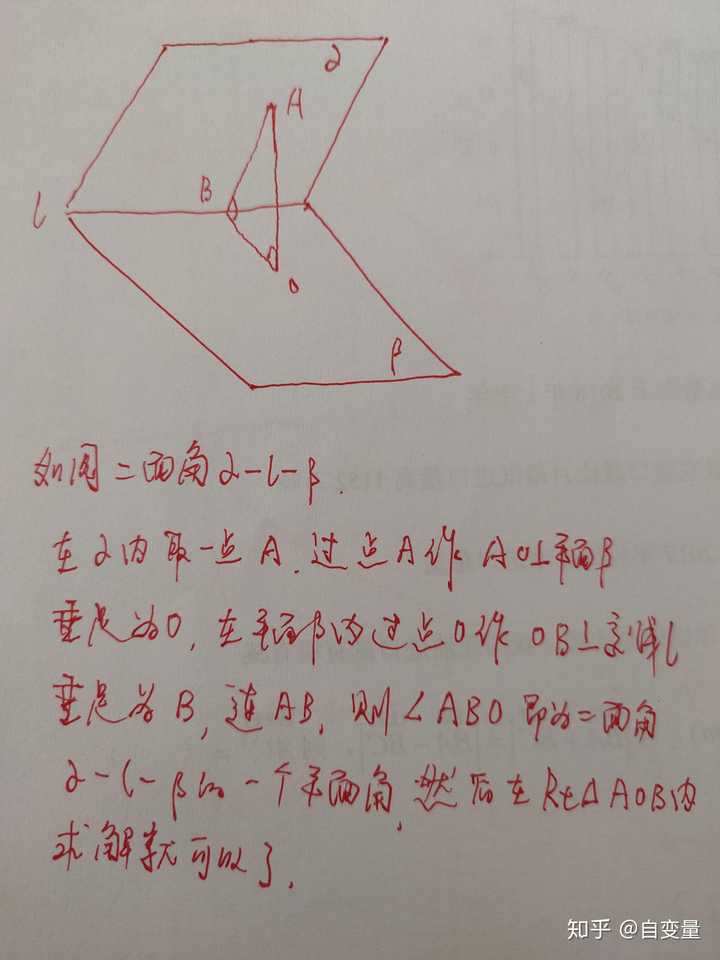 α
A
B
l
O
β
如图二面角α-l-β.
在α内取一点A.过点A作AO⊥平面β
垂足为O,在平面β内过点O作OB⊥交线l
垂足为B,连AB,则∠ABO即为二面角
α-l-β的一个平面角,然后在Rt△AOB内
求解就可以了.
知乎 @自变量